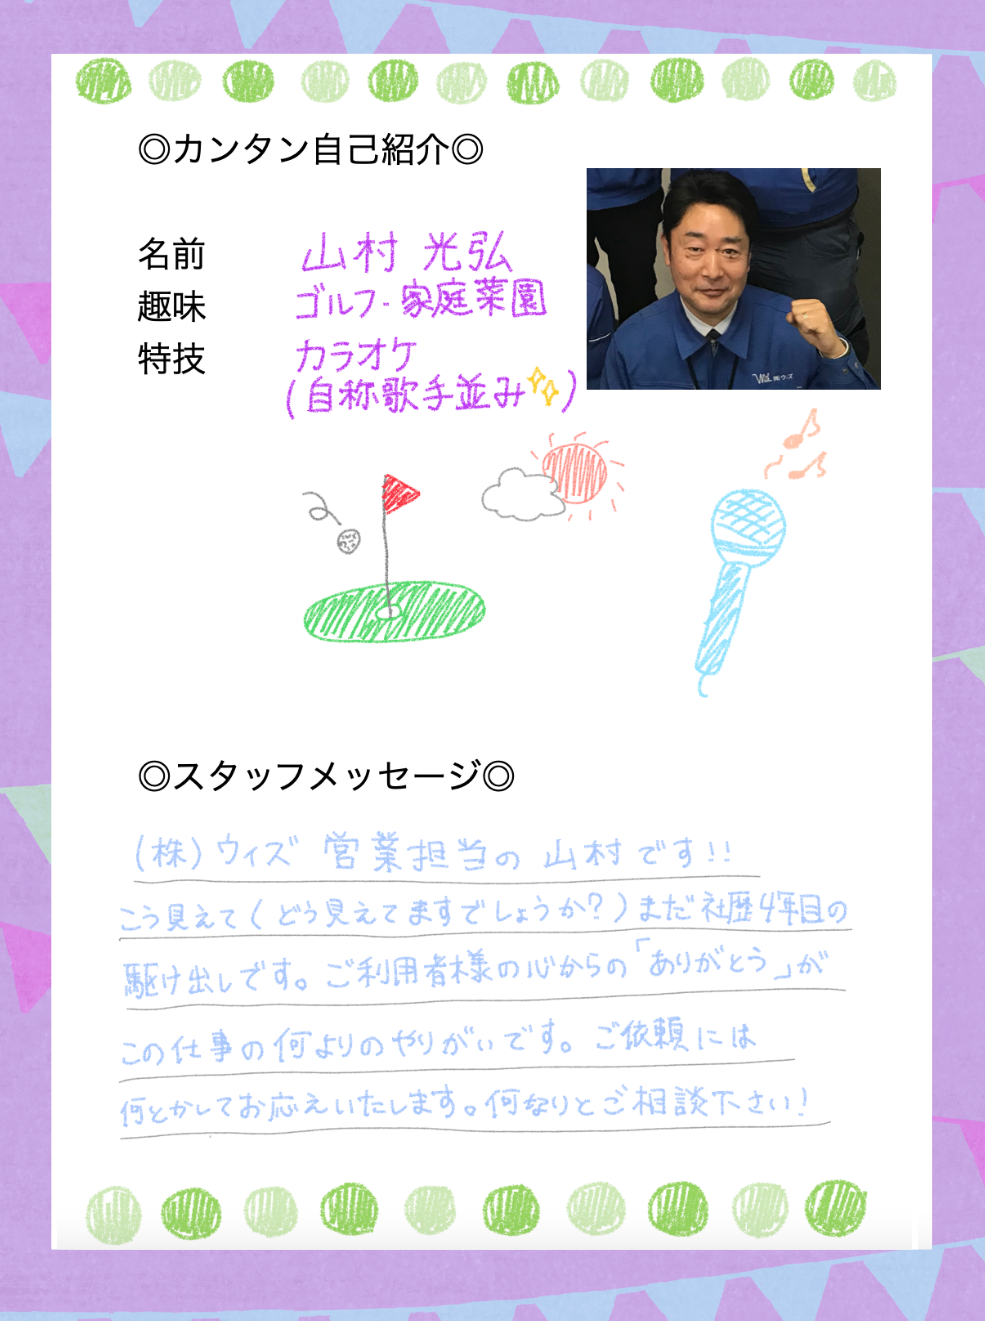 ◎カンタン自己紹介◎
名前 山村 光弘
趣味 ゴルフ・家庭菜園
特技 カラオケ
(自称歌手並み✨)
Wiz ㈱ウィズ
◎スタッフメッセージ◎
(株)ウィズ 営業担当の 山村です!!
こう見えて(どう見えてますでしょうか?)まだ社歴4年目の
駆け出しです。ご利用者様の心からの「ありがとう」が
この仕事の何よりのやりがいです。ご依頼には
何とかしてお応えいたします。何なりとご相談下さい!